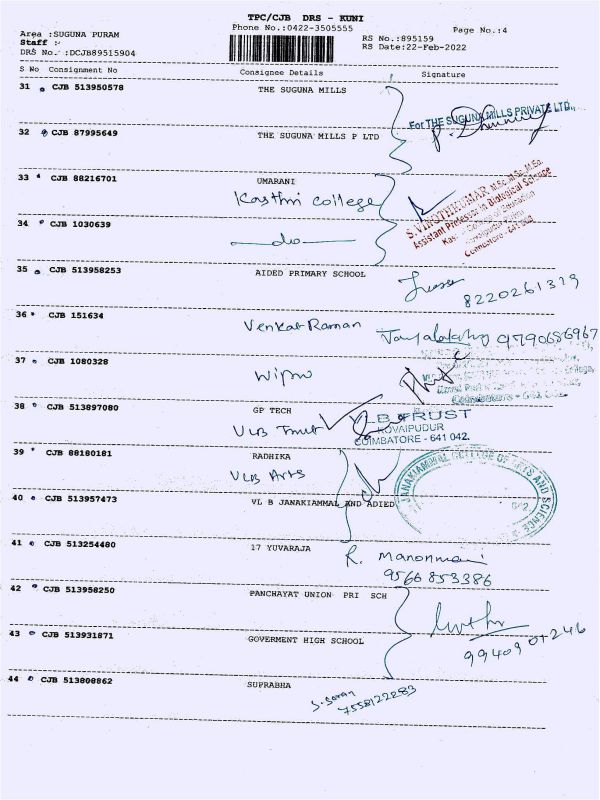 TPC/CJB DRS - KUNI
Phone No.:0422-3505555
Page No.:4
Area :SUGUNA PURAM
RS No.:895159
Staff :-
RS Date:22-Feb-2022
DRS No. :DCJB89515904
S No Consignment No Consignee Details Signature
31 CJB 513950578 THE SUGUNA MILLS
For THE SUGUNA MILLS PRIVATE LTD.,
32 CJB 87995649 THE SUGUNA MILLS P LTD
33 CJB 88216701 UMARANI
Kasthri College
S. VINOTHKUMAR M.Sc.,M.Sc.,M.Ed.
Assistant Professor in Biological Science
College of Education
Coimbatore - 641 008
34 CJB 1030639
do
35 CJB 513958253 AIDED PRIMARY SCHOOL
8220261319
36 CJB 151634
Venkat Raman
9790686967
37 CJB 1080328
Wipro
38 CJB 513897080 GP TECH
VLB Trust
VLB TRUST
KOVAIPUDUR
COIMBATORE - 641 042.
39 CJB 88180181 RADHIKA
VLB Arts
JANAKIAMMAL COLLEGE OF ARTS AND SCIENCE
40 CJB 513957473 VL B JANAKIAMMAL AND ADIED
41 CJB 513254480 17 YUVARAJA
R. Manonmani
9566853386
42 CJB 513958250 PANCHAYAT UNION PRI SCH
43 CJB 513931871 GOVERMENT HIGH SCHOOL
99409 07246
44 CJB 513808862 SUPRABHA
S. Saran
7558122883